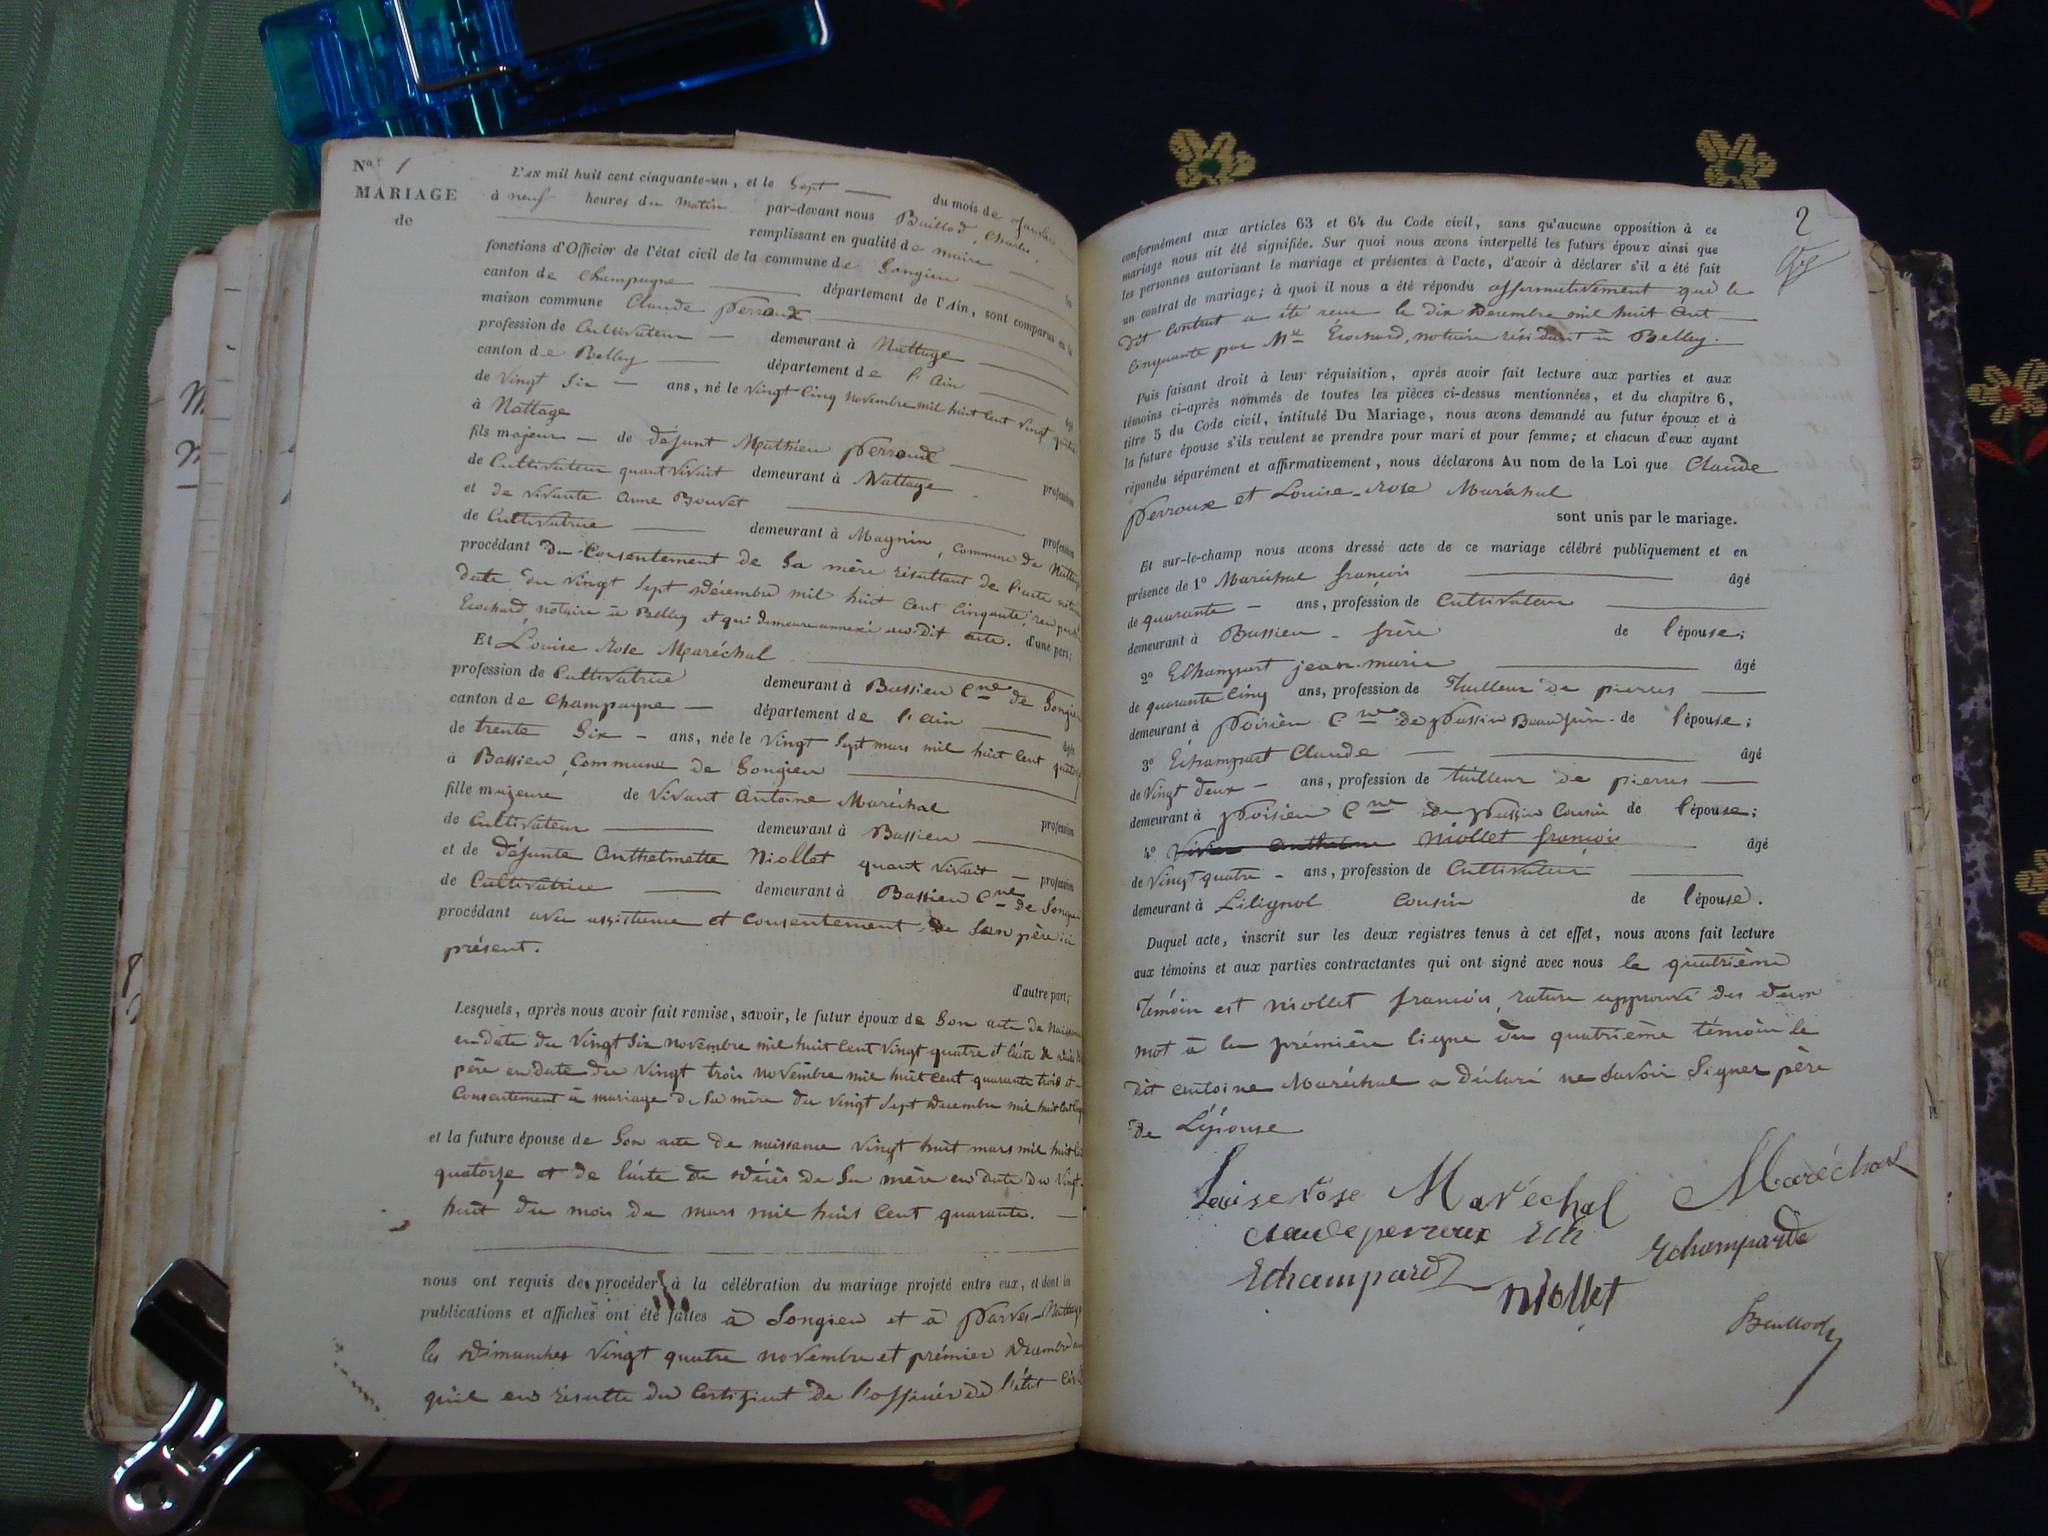 N° 1
MARIAGE
de
L'AN mil huit cent cinquante-un, et le Sept du mois de Janvier
à neuf heures du matin par-devant nous Baillod, Charles,
remplissant en qualité de maire les
fonctions d'Officier de l'état civil de la commune de Songieu
canton de Champagne département de l'Ain, sont comparus en la
maison commune Claude Perroux
profession de Cultivateur demeurant à Nattage
canton de Belley département de l'ain âgé
de Vingt Six ans, né le Vingt Cinq novembre mil huit Cent Vingt quatre
à Nattage
fils majeur de défunt Mathieu Perroux profession
de Cultivateur quant Vivait demeurant à Nattage
et de Vivante anne Bouvet profession
de Cultivatrice demeurant à Magnin, Commune de Nattage
procédant du Consentement de Sa mère résultant de l'acte
date du Vingt Sept décembre mil huit Cent Cinquante, reçu par
Ecochard, notaire à Belley et qui demeure annexé au dit acte. d'une part;
Et Louise Rose Maréchal
profession de Cultivatrice demeurant à Bassieu Cne de Songieu
canton de Champagne département de l'ain âgée
de trente Six ans, née le Vingt Sept mars mil huit Cent quatorze
à Bassieu, Commune de Songieu
fille majeure de Vivant Antoine Maréchal profession
de Cultivateur demeurant à Bassieu
et de défunte Anthelmette Niollet quant Vivait profession
de Cultivatrice demeurant à Bassieu Cne de Songieu
procédant avec assistance et Consentement de Son père ici
présent.
d'autre part;
Lesquels, après nous avoir fait remise, savoir, le futur époux de Son acte de Naissance
en date du Vingt Six novembre mil huit Cent Vingt quatre et l'acte de décès de
père en date du Vingt trois novembre mil huit cent quarante trois et
Consentement à mariage de Sa mère du Vingt Sept décembre mil huit Cent
et la future épouse de Son acte de naissance Vingt huit mars mil huit Cent
quatorze et de l'acte de décès de Sa mère en date du Vingt
huit du mois de mars mil huit Cent quarante.
nous ont requis de procéder à la célébration du mariage projeté entre eux, et dont les
publications et affiches ont été faites à Songieu et à Parves-Nattage
les Dimanches Vingt quatre novembre et prémier décembre
qu'il en résulte du Certificat de l'officier de l'état Civil
2
conformément aux articles 63 et 64 du Code civil, sans qu'aucune opposition à ce
mariage nous ait été signifiée. Sur quoi nous avons interpellé les futurs époux ainsi que
les personnes autorisant le mariage et présentes à l'acte, d'avoir à déclarer s'il a été fait
un contrat de mariage; à quoi il nous a été répondu affirmativement que le
dit Contrat a été reçu le dix décembre mil huit Cent
Cinquante par Me Ecochard, notaire résidant à Belley.
Puis faisant droit à leur réquisition, après avoir fait lecture aux parties et aux
témoins ci-après nommés de toutes les pièces ci-dessus mentionnées, et du chapitre 6,
titre 5 du Code civil, intitulé Du Mariage, nous avons demandé au futur époux et à
la future épouse s'ils veulent se prendre pour mari et pour femme; et chacun d'eux ayant
répondu séparément et affirmativement, nous déclarons Au nom de la Loi que Claude
Perroux et Louise-Rose Maréchal
sont unis par le mariage.
Et sur-le-champ nous avons dressé acte de ce mariage célébré publiquement et en
présence de 1° Maréchal françois âgé
de quarante ans, profession de Cultivateur
demeurant à Bassieu - frère de l'épouse;
2° Echampart jean-marie âgé
de quarante Cinq ans, profession de Tailleur de pierres
demeurant à Poisieu Cne de Passin Beau frère de l'épouse;
3° Echampart Claude âgé
de Vingt deux ans, profession de tailleur de pierres
demeurant à Poisieu Cne de Passin Cousin de l'épouse;
4° Niollet françois âgé
de Vingt quatre ans, profession de Cultivateur
demeurant à Lilignol Cousin de l'épouse.
Duquel acte, inscrit sur les deux registres tenus à cet effet, nous avons fait lecture
aux témoins et aux parties contractantes qui ont signé avec nous le quatrième
Témoin est Niollet françois, rature approuvé des deux
mot à la prémière ligne du quatrième témoin le
dit antoine Maréchal a déclaré ne Savoir Signer père
de L'épouse
Louise rose Maréchal Maréchal
Claude perroux Ech Echamparde
Echampard Niollet
Baillod